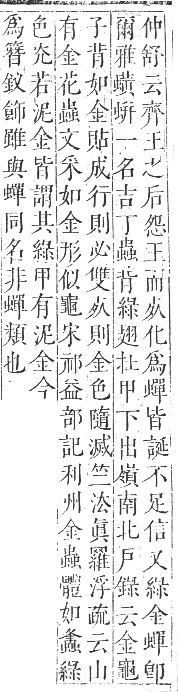 仲舒云齊王之后怨王而死化為蟬皆誕不足信又綠金蟬卽
爾雅蟥蛢一名吉丁蟲背綠翅在甲下出嶺南北戶錄云金龜
子背如金貼成行則必雙死則金色隨滅竺法眞羅浮疏云山
有金花蟲文采如金形似龜宋祁益部記利州金蟲體如蠭綠
色光若泥金皆謂其綠甲有泥金今
為簪釵飾雖與蟬同名非蟬類也